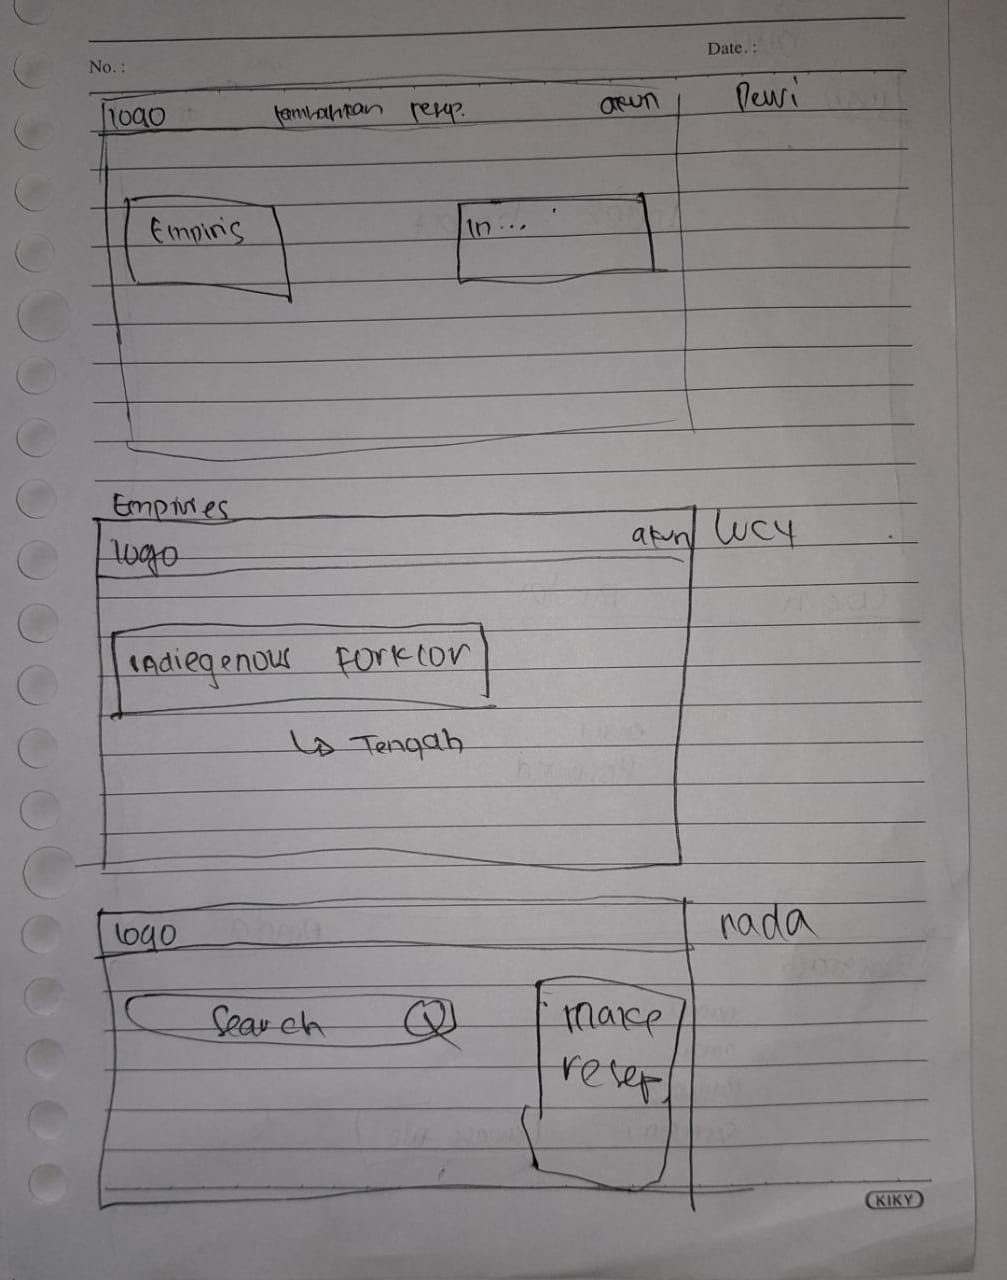 No. :
Date. :
logo tambahkan resep. akun Dewi
Empiris
In...
Empires
logo akun WC4
Indiegenous Forklor
↳ Tengah
logo nada
Search
make
resep
KIKY